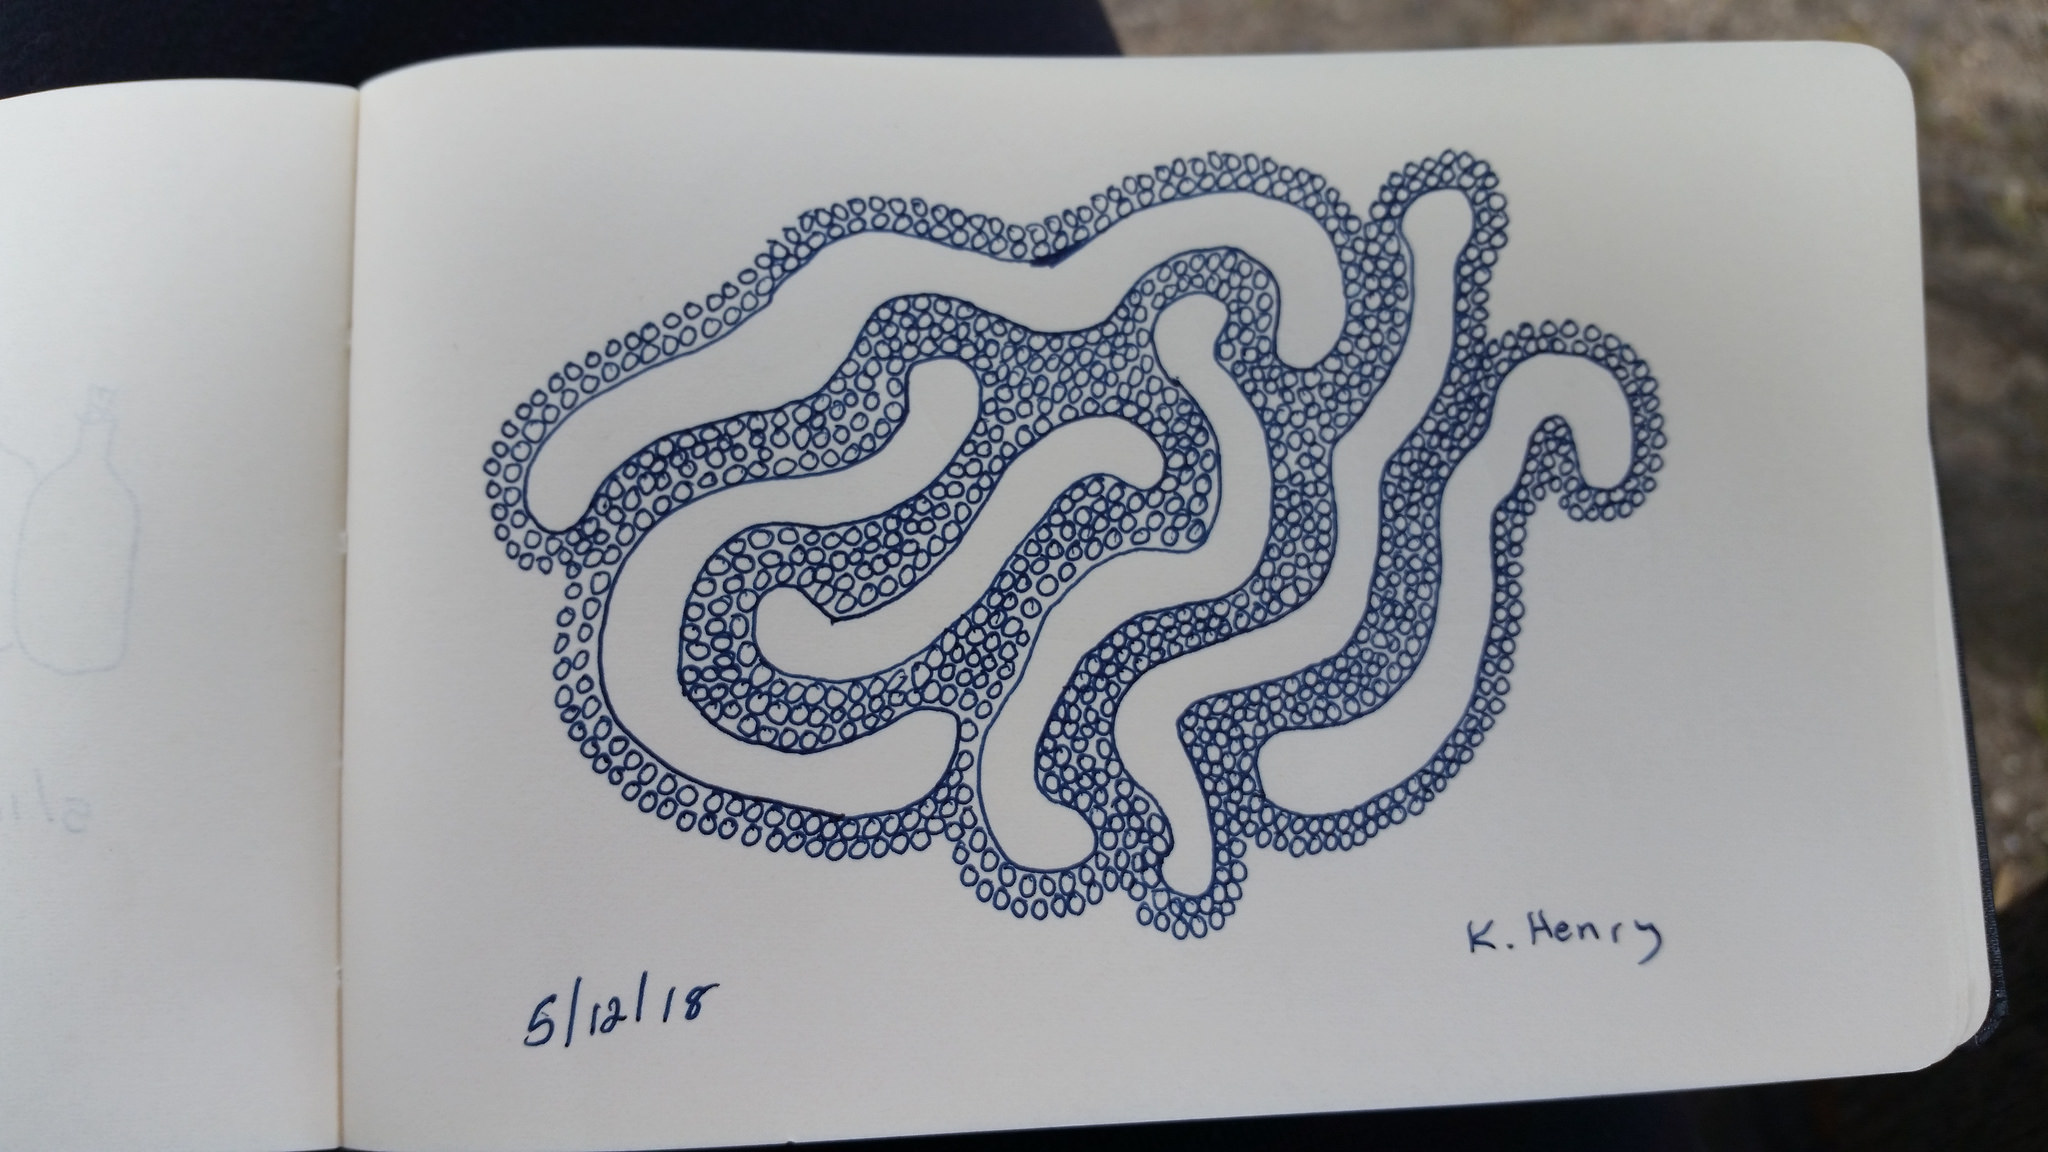 K. Henry
5/12/18